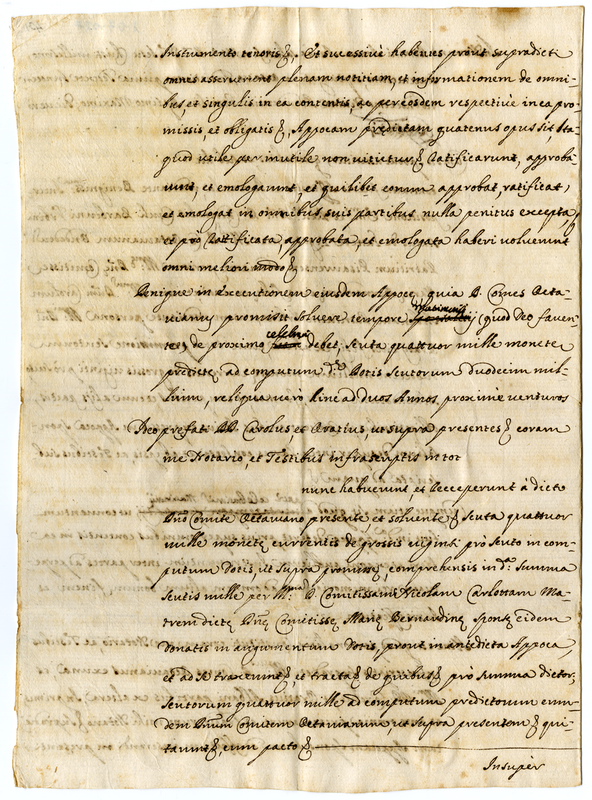 Instrumento tenoris &. Et sucessivè habentes prout supradicti
omnes asseruerunt plenam notitiam, et informationem de omni-
bus, et singulis in ea contentis, ac per eosdem respectivè in ea pro-
missis, et obligatis &, Appocam predictam quatenus opus sit, Ita
quod utile per inutile non vitietur & Ratificarunt, approba-
runt, et emologarunt, et quilibet eorum approbat, ratificat,
et emologat in omnibus suis partibus nulla penitus excepta,
et pro Rattificata, approbata, et emologata haberi voluerunt
omni meliori modo &
Denique in executionem eiusdem Appoce, quia D. Comes Octa-
vianus promisit solvere tempore Matrimonij quod Deo faven-
te, de proximo celebrari debet, scuta quattuor mille monete
predicte ad computum d.e Dotis scutorum duodecim mil-
lium, reliqua verò hinc ad duos Annos proximè venturos
Ideo prefati DD. Carolus, et Oratius, ut supra presentes & coram
me Notario, et Testibus infrascriptis in tot
nunc habuerunt et Recceperunt à dicto
Dno Comite Octaviano presente, et solvente & scuta quattuor
mille monete currentis de grossis viginti prò scuto in com-
putum Dotis, ut supra promisse, comprehensis in d.a summa
scutis mille per D. Comitissam Nicolam Carlottam Ma-
trem dicte Dne Comitisse Marie Bernardine Sponse eidem
donatis in augumentum Dotis, prout in antedicta Appoca,
et ad se traxerunt & et tracta & de quibus & prò summa dictor.
scutorum quattuor mille ad computum predictorum eum-
dem Dnum Comitem Octavianum, ut supra presentem & qui-
tarunt &, cum pacto &
Insupèr